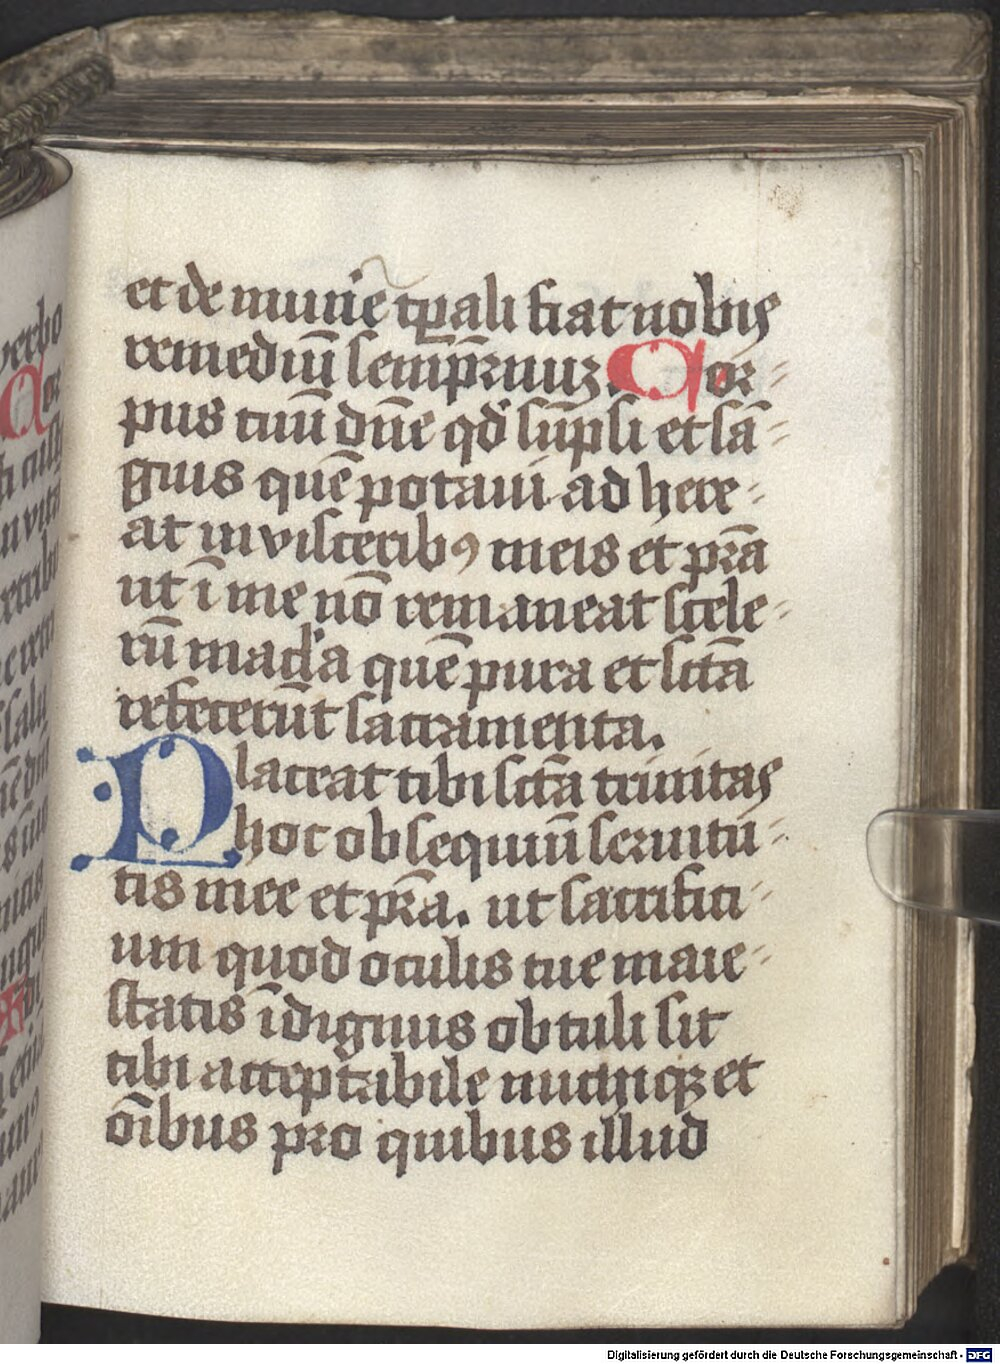 et de mune᷑ tp̲ali fiat nobis
remediū semp̄rnuuz. Cor⸗
pus tuū dn̄e qd̓ sūpsi et sā⸗
guis quē potaui ad here⸗
at in viscerib9 meis et pr̄a
ut ī me nō remaneat scele⸗
rū mac̓la quē pura et sctā
refecerūt sacramenta.
Placeat tibi sctā trinitas
hoc obsequiuū seruitū⸗
tis mee et pr̄a. ut sacrifici⸗
um quod oculis tue maie⸗
statis īdignus obtuli sit
tibi acceptabile michiqz et
oībus pro quibus illud
verbo
Cor
Digitalisierung gefördert durch die Deutsche Forschungsgemeinschaft - DFG